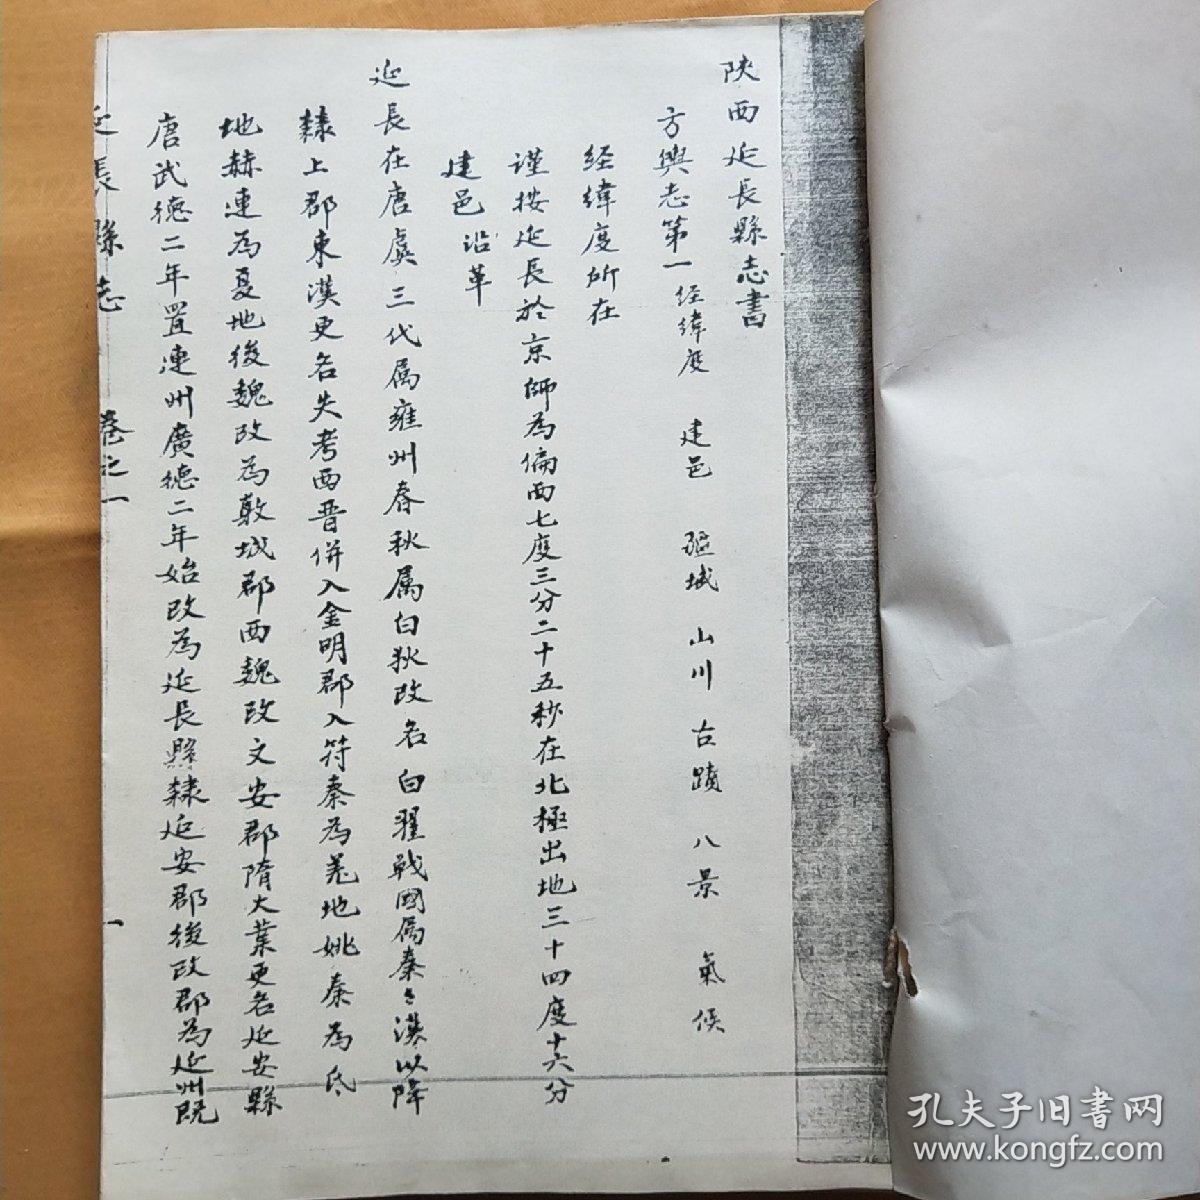 陝西延長縣志書
方輿志第一 経緯度 建邑 疆域 山川 古蹟 八景 氣候
経緯度所在
謹按延長於京師為偏西七度三分二十五秒在北極出地三十四度十六分
建邑沿革
延長在唐虞三代属雍州春秋属白狄改名白翟戦國属秦〻漢以降
隸上郡東漢更名失考西晋併入金明郡入符秦為羌地姚秦為氐
地赫連為夏地後魏改為敷城郡西魏改文安郡隋大業更名延安縣
唐武德二年置連州廣德二年始改為延長縣隸延安郡後改郡為延州既
延長縣志 卷之一 一
孔夫子旧書网
www.kongfz.com